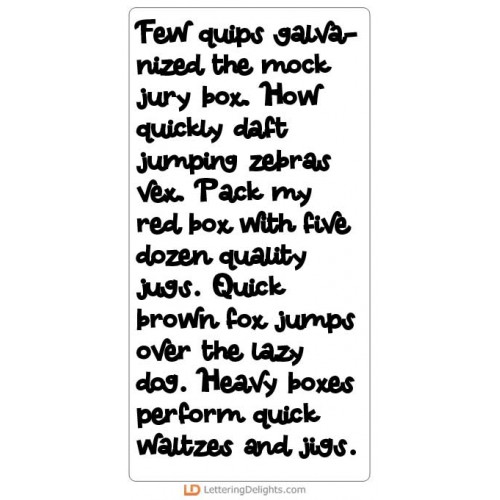 Few quips galva-
nized the mock
jury box. How
quickly daft
jumping zebras
vex. Pack my
red box with five
dozen quality
jugs. Quick
brown fox jumps
over the lazy
dog. Heavy boxes
perform quick
waltzes and jigs.
LD LetteringDelights.com